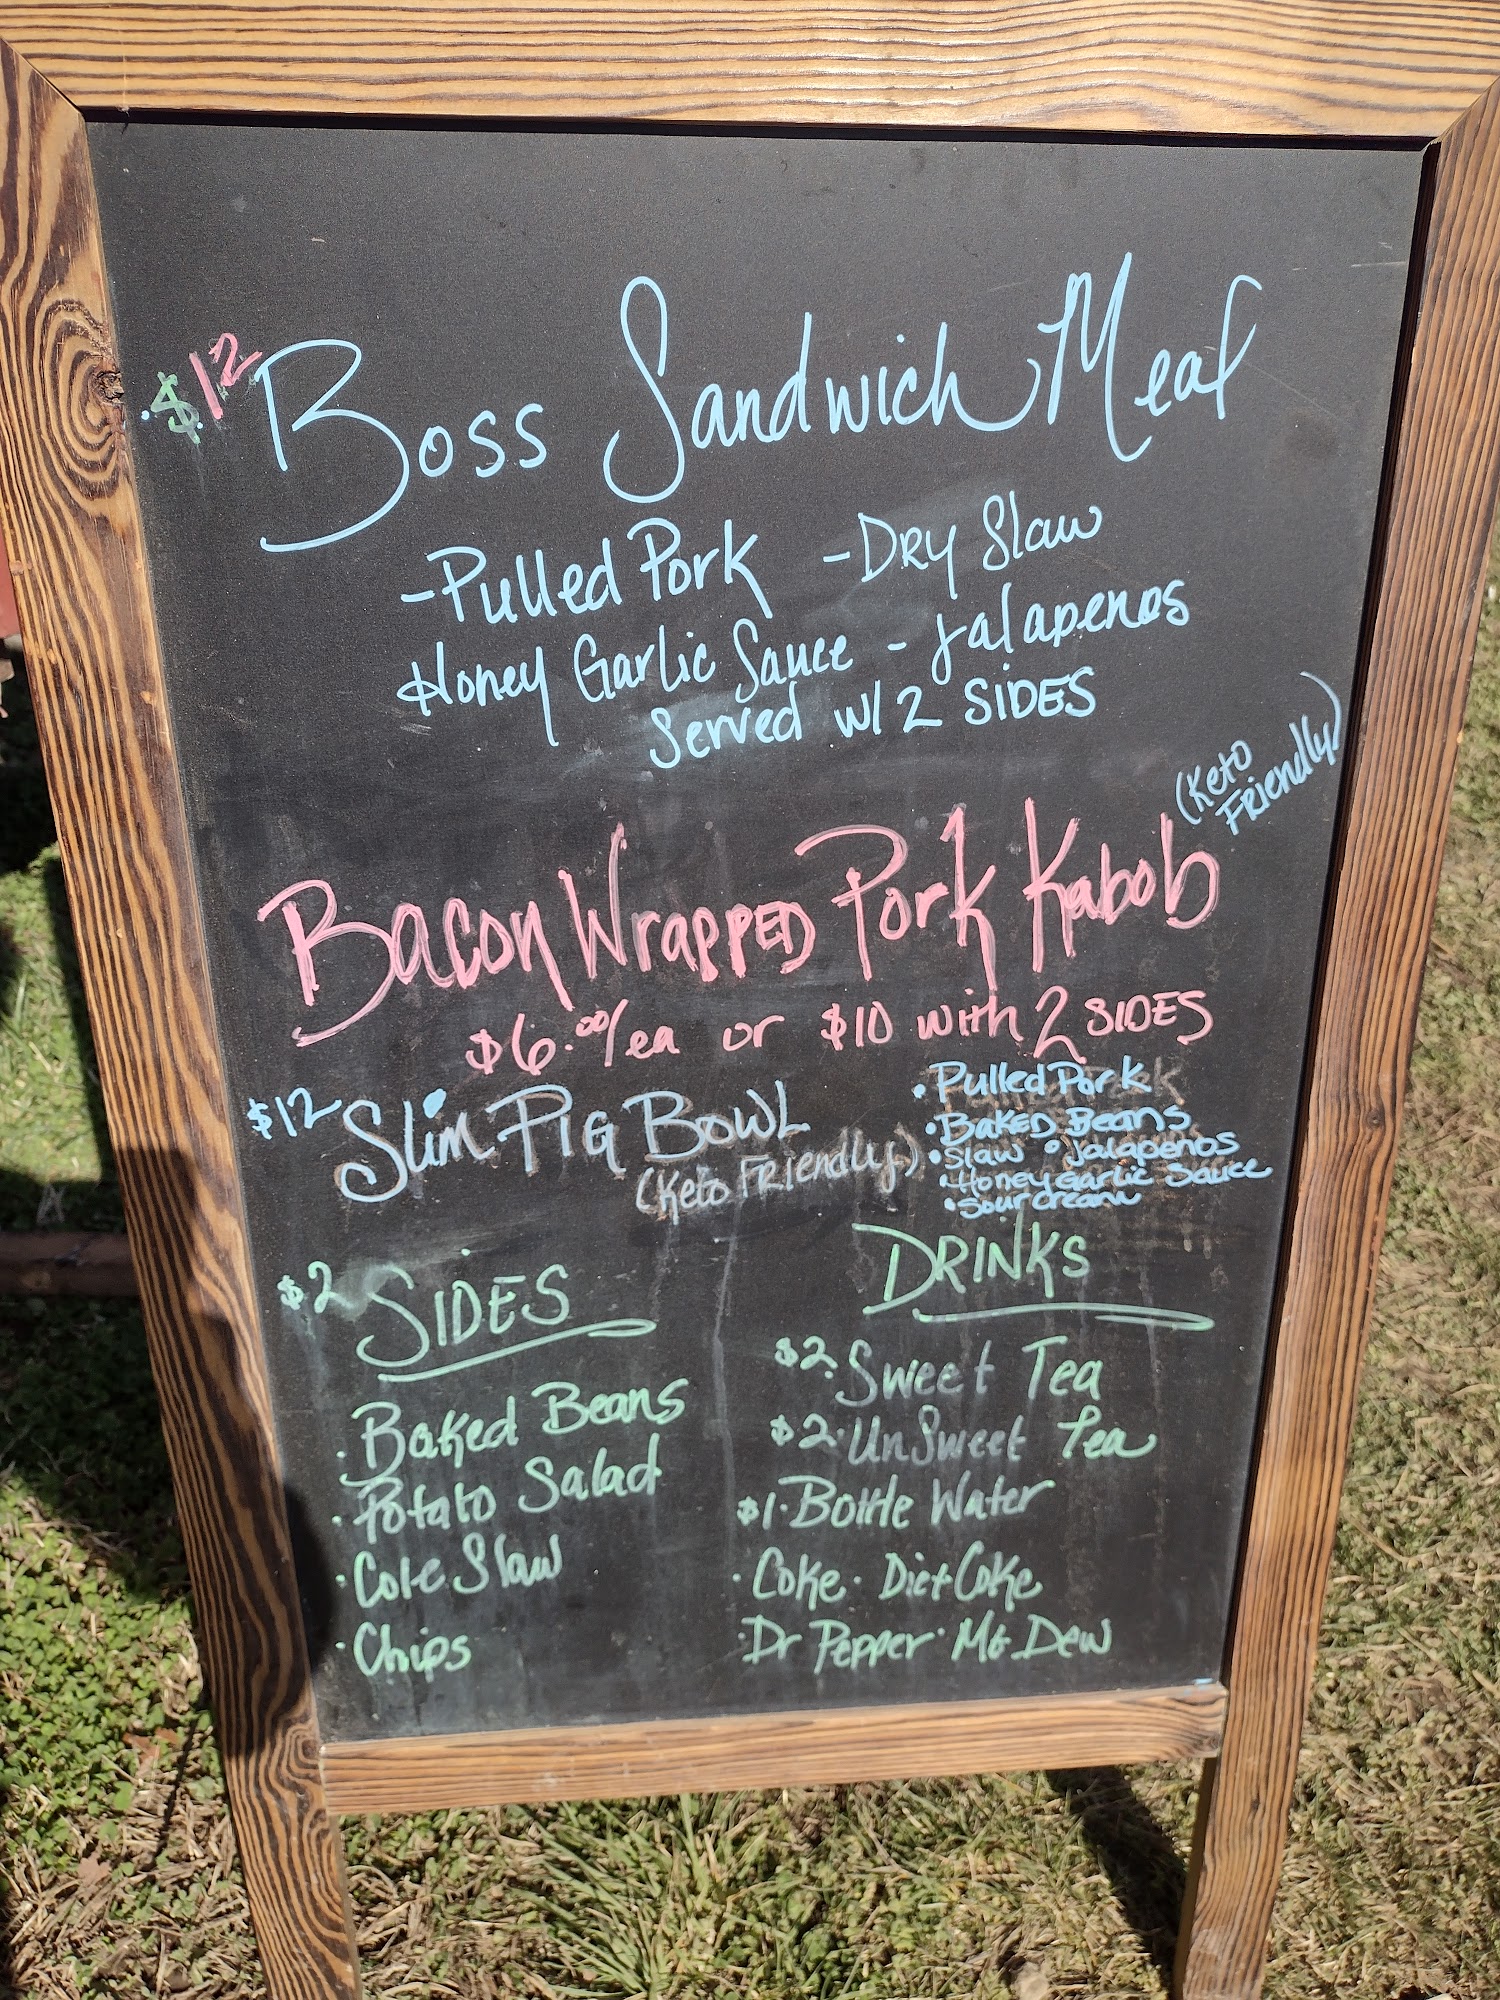 $12 Boss Sandwich Meal
-Pulled Pork -Dry Slaw
Honey Garlic Sauce - Jalapenos
Served w/ 2 SIDES
(Keto
Friendly)
Bacon Wrapped Pork Kabob
$6.00/ea or $10 with 2 SIDES
$12 Slim Pig Bowl
(Keto Friendly)
• Pulled Pork
• Baked Beans
• Slaw • Jalapenos
• Honey Garlic Sauce
• Sour Cream
$2 SIDES
· Baked Beans
· Potato Salad
· Cole Slaw
· Chips
DRINKS
$2 · Sweet Tea
$2 · UnSweet Tea
$1 · Bottle Water
· Coke · Diet Coke
· Dr Pepper · Mt. Dew